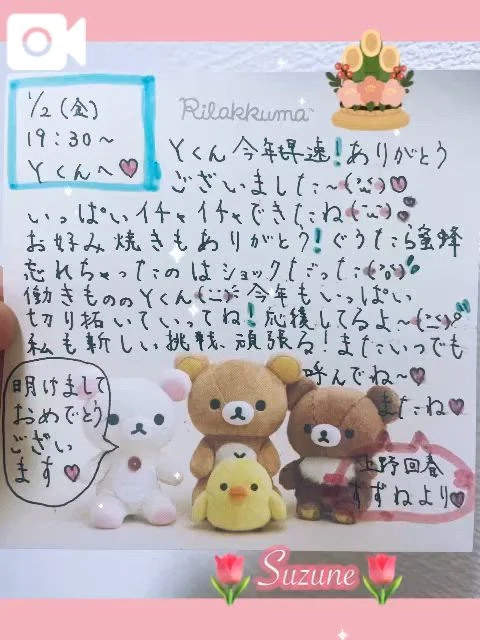 1/2(金)
19:30〜
Yくんへ
Rilakkuma
Yくん今年早速!ありがとう
ございました〜
いっぱいイチャイチャできたね
お好み焼きもありがとう!ぐうたら蜜蜂
忘れちゃったのはショックだった
働きもののYくん 今年もいっぱい
切り拓いていってね!応援してるよ〜
私も新しい挑戦、頑張る!またいつでも
呼んでね〜
またね
明けまして
おめでとう
ござい
ます
上野回春
すずねより
Suzune